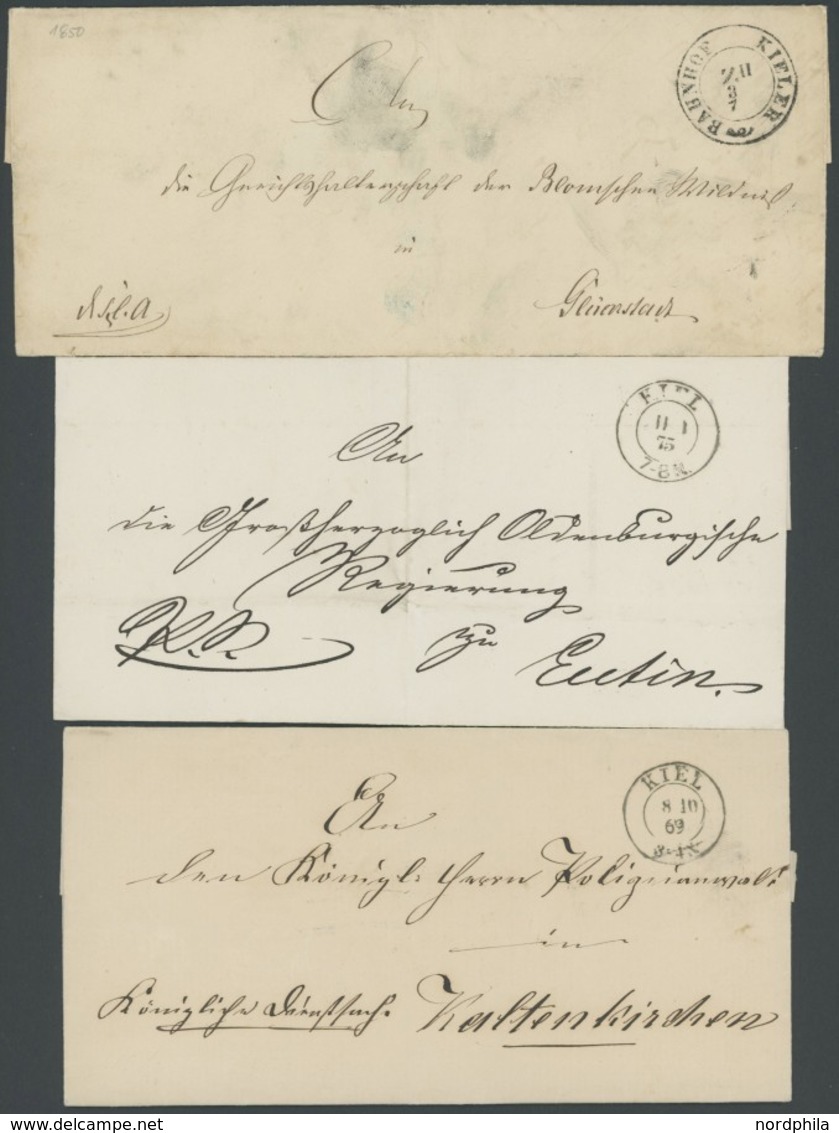 1850
An
BAHNHOF KIELER
Z.II
3
7
die Gerichtshalterschaft der Blomschen Wildniß
in
Glückstadt
KIEL
11 1
75
7-8 N.
An
die Großherzoglich Oldenburgische
Regierung
zu
Eutin.
KIEL
8 10
69
An
den Königl. Herrn Polizeianwalt
in
Königliche Dienstsache Kaltenkirchen
nordphila
www.delcampe.net